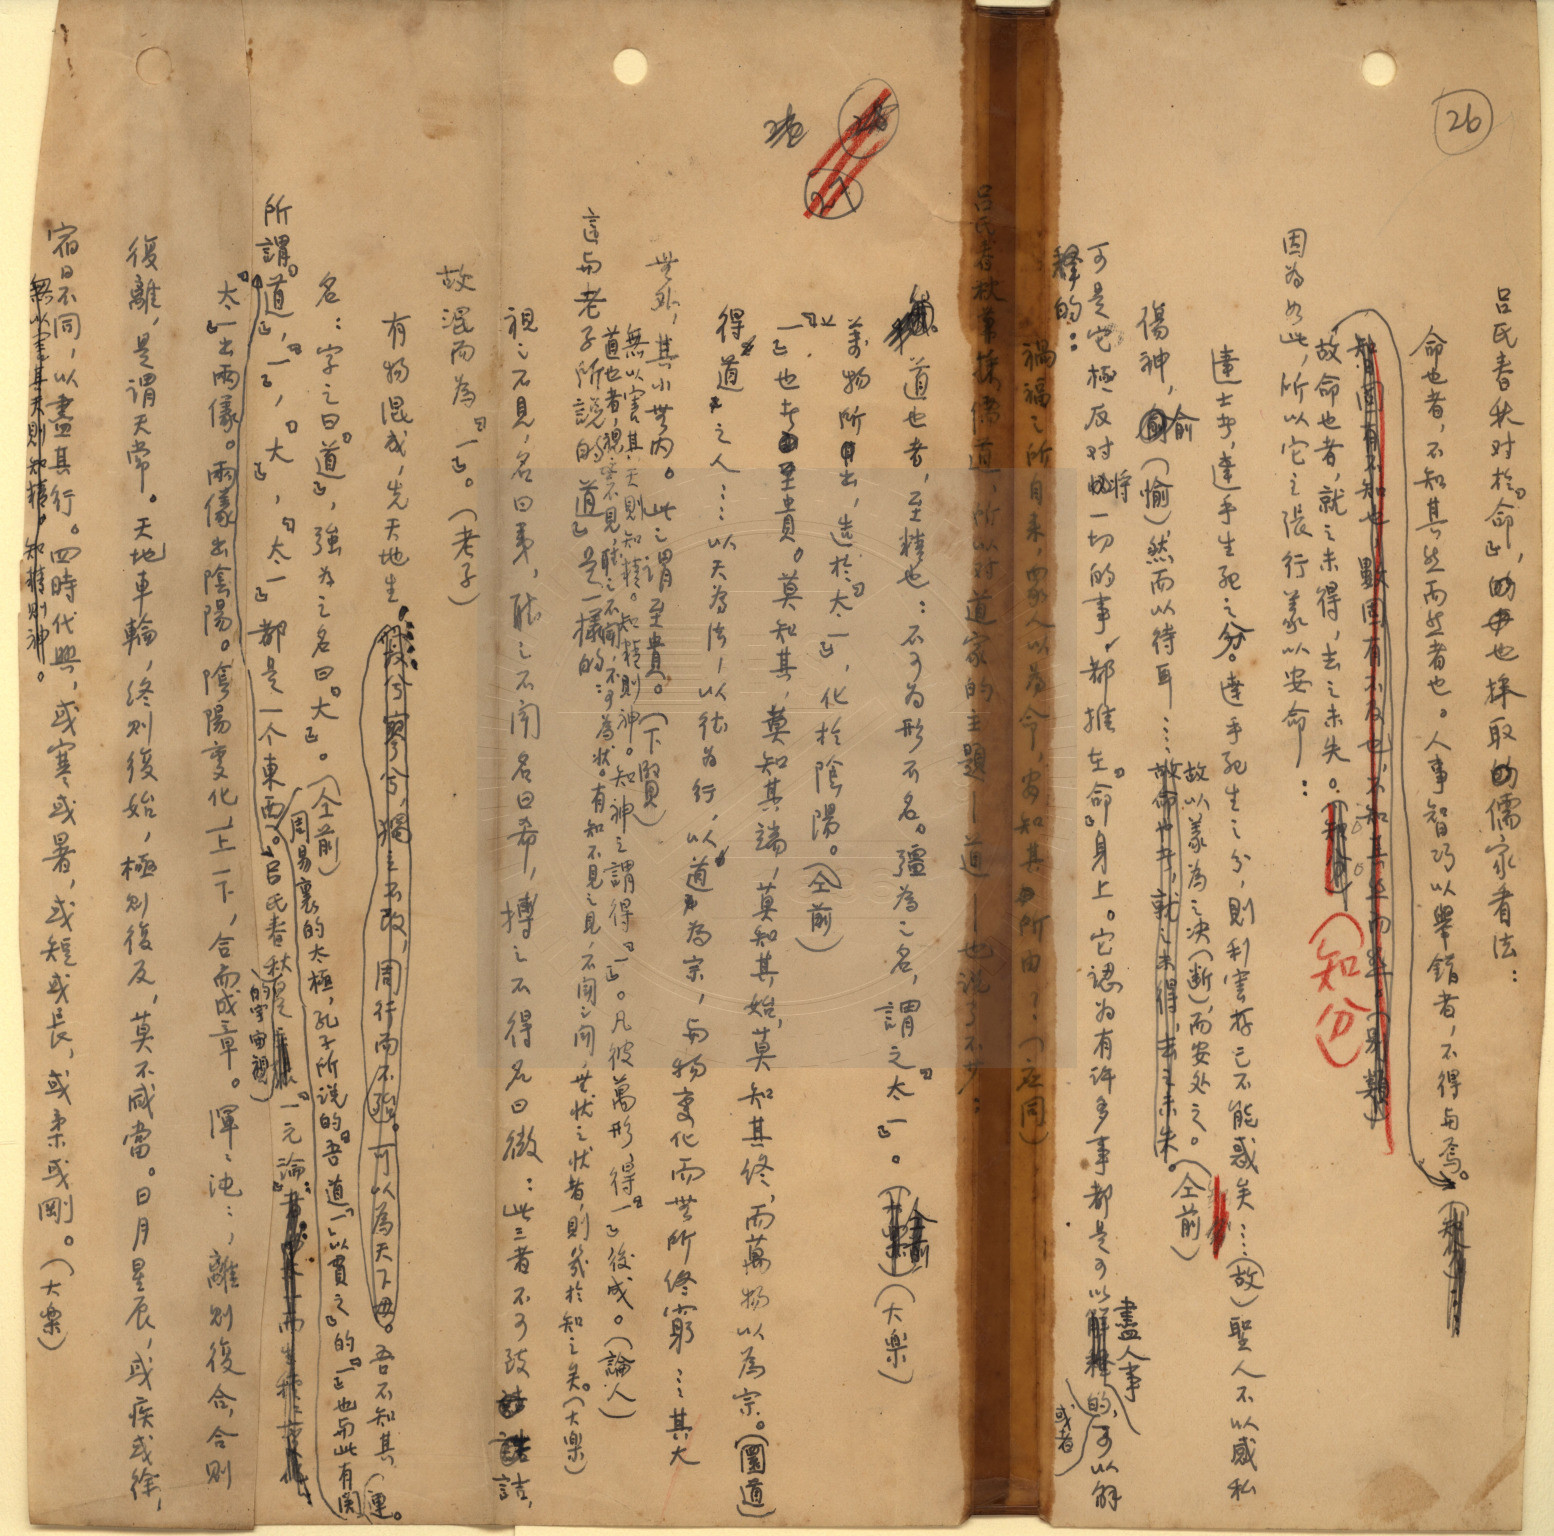 26
呂氏春秋对於「命」的也採取儒家看法：
命也者，不知其所然而然者也。人事智巧以舉錯者，不得与焉。
故命也者，就之未得，去之未失。
（知分）
因为如此，所以它主張行義以安命：
達士者，達乎生死之分。達乎死生之分，則利害存亡不能惑矣……（故）聖人不以感私
傷神，俞（愉）然而以待耳……故以義為之决（断），而安处之。（仝前）
可是它極反对将一切的事，都推在「命」身上。它認为有许多事都是可以盡人事的，或者可以解
釋的：
禍福之所自来，眾人以為命，安知其所由？（应同）
呂氏春秋兼採儒道，所以对道家的主題—道—也说了不少：
道也者，至精也：不可为形不名。彊為之名，謂之「太一」。（大樂）
萬物所出，造於「太一」，化於陰陽。（仝前）
「一」也者至貴。莫知其，莫知其端，莫知其始，莫知其終，而萬物以為宗。（圜道）
得道之人……以天为法，以德为行，以道为宗，与物变化而無所終窮……其大
無外，其小無内。此之謂至貴。（下賢）
無以害其天則知精。知精則神。知神之謂得「一」。凡彼萬形，得「一」後成。（論人）
道也者，視之不見，聽之不聞，不可為状。有知不見之見，不聞之聞，無状之状者，則幾於知之矣。（大樂）
這与老子所說的「道」是一樣的：
視之不見，名曰夷，聽之不聞名曰希，摶之不得名曰微：此三者不可致詰，
故混而为「一」。（老子）
有物混成，先天地生，寂兮寥兮，獨立不改，周行而不殆。可以為天下母。吾不知其
名：字之曰「道」，強为之名曰「大」。（仝前）
周易裏的太極，孔子所説的「吾道一以貫之」的「一」也与此有関連。
所謂「道」，「一」，「大」，「太一」都是一个東西。呂氏春秋的宇宙觀是「一元論」：
「太一」出兩儀。兩儀出陰陽。陰陽变化，一上一下，合而成章。渾渾沌沌，離則復合，合則
復離，是谓天常。天地車輪，終則復始，極則復反，莫不咸當。日月星辰，或疾或徐，
宿日不同，以盡其行。四時代興，或寒或暑，或短或長，或柔或剛。（大樂）
無以害其天則知精。知精則神。